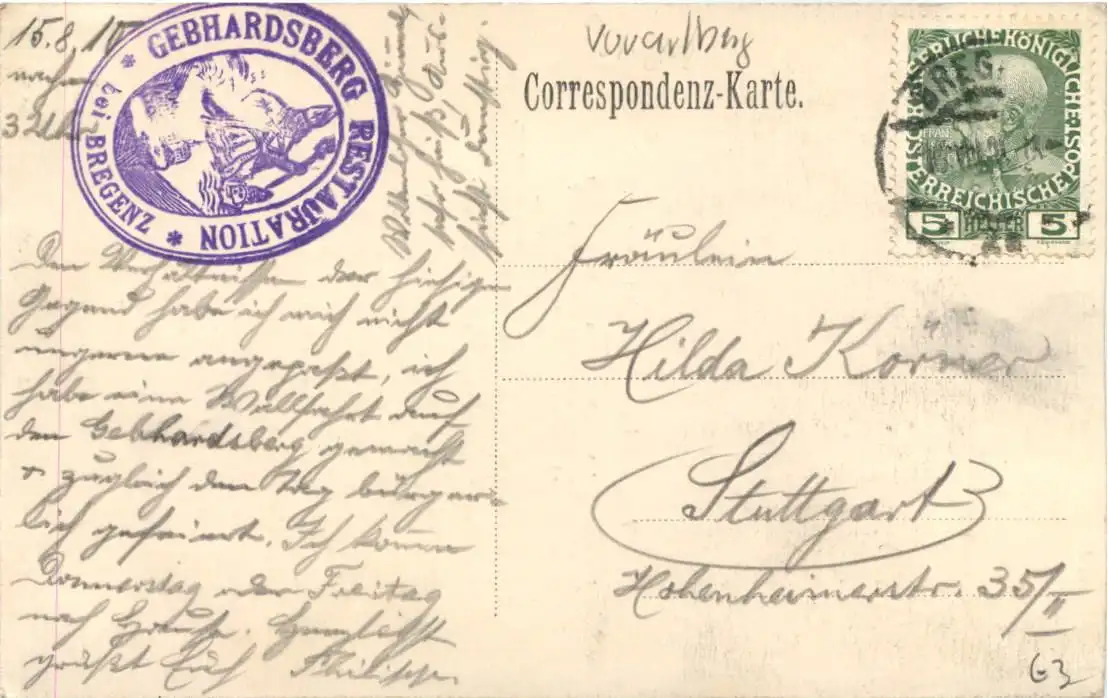 15.8.10
nachm
3 Uhr
GEBHARDSBERG RESTAURATION
* bei BREGENZ *
Vorarlberg
Correspondenz-Karte.
KAISERLICHE KÖNIGLICHE POST
ÖSTERREICHISCHE
5 HELLER 5
BREG
Den Verhältnissen der hiesigen
Gegend habe ich mich nicht
ungerne angepaßt, ich
habe eine Wallfahrt auf
den Gebhardsberg gemacht
& zugleich den Tag bürger-
lich gefeiert. Ich komme
Donnerstag oder Freitag
nach Hause. Herzlichst
grüßt Euch Philipp.
sehr heiß!
Fräulein
Hilda Körner
Stuttgart
Hohenheimerstr. 35/II
63